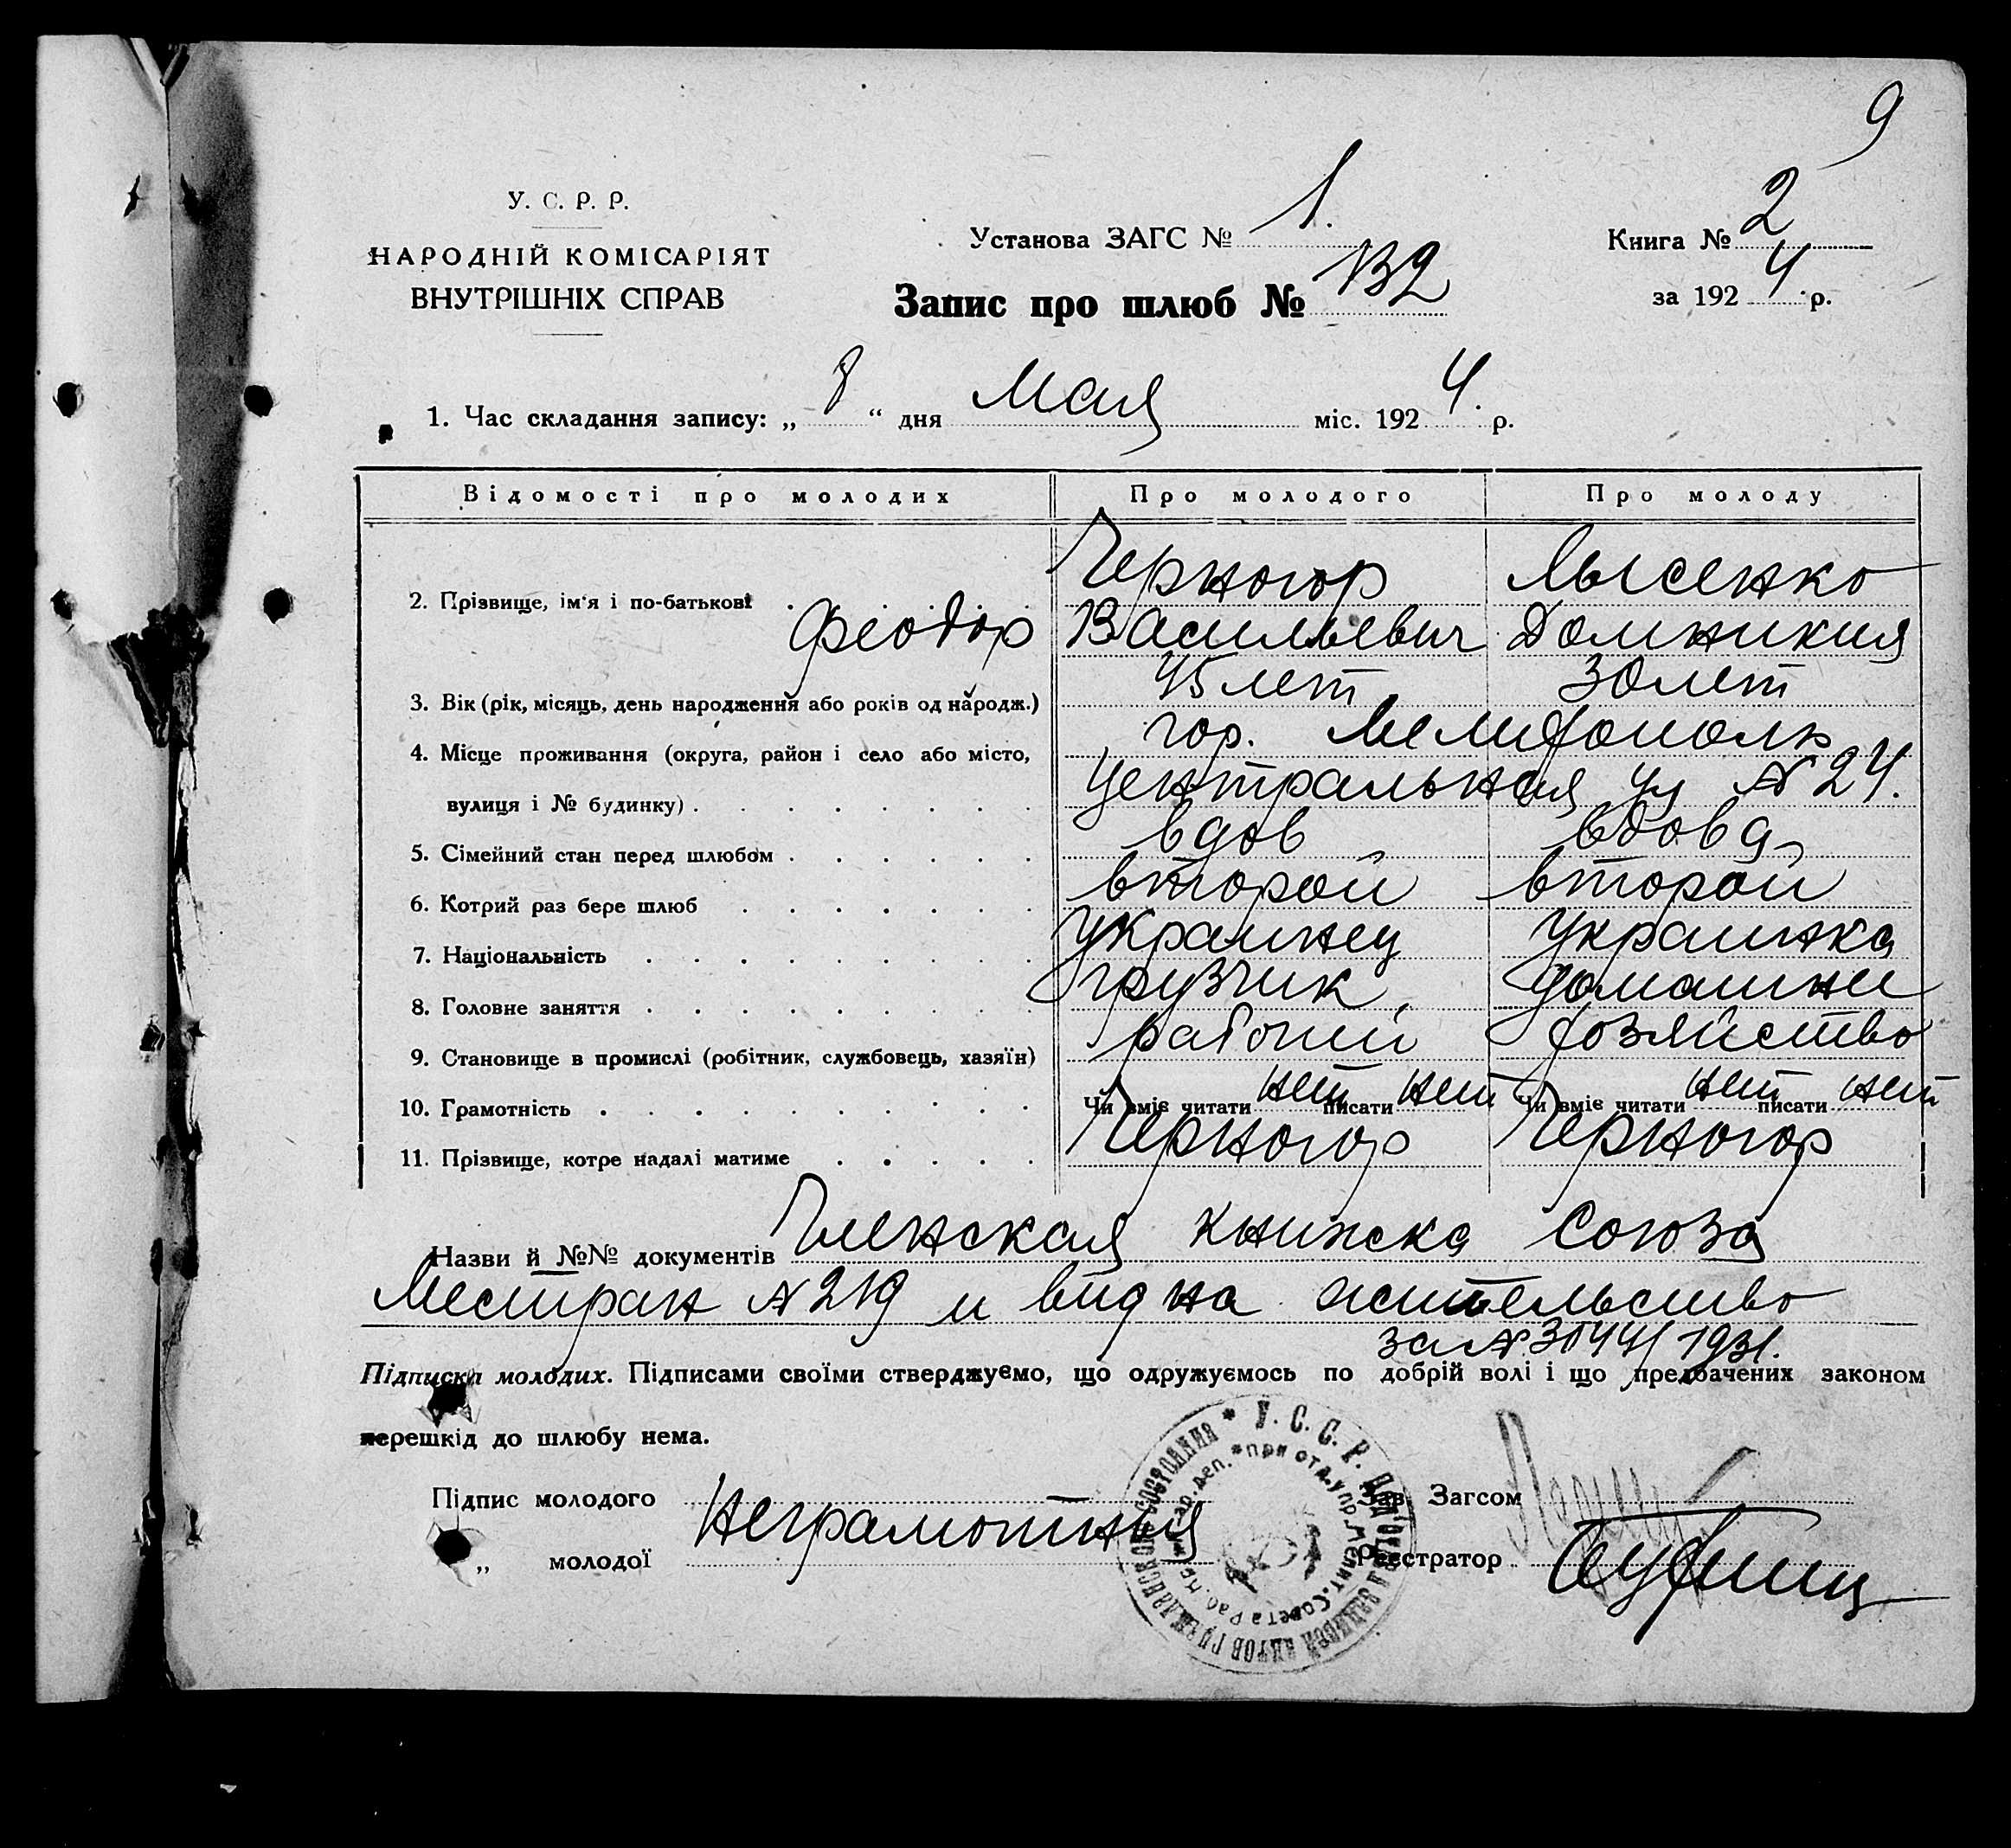 9
У. С. Р. Р.
НАРОДНІЙ КОМІСАРІЯТ
ВНУТРІШНІХ СПРАВ
Установа ЗАГС № 1.
Запис про шлюб № 132
Книга № 2
за 1924 р.
1. Час складання запису: „ 8 “ дня Мая міс. 1924. р.
Відомості про молодих Про молодого Про молоду
2. Прізвище, ім‘я і по-батькові Черногор Лысенко
Феодор Васильевич Домникия
3. Вік (рік, місяць, день народження або років од народж.) 45 лет 30 лет
4. Місце проживання (округа, район і село або місто, гор. Мелитополь
вулиця і № будинку) Центральная ул №24.
5. Сімейний стан перед шлюбом вдов вдова
6. Котрий раз бере шлюб второй второй
7. Національність Украинец Украинка
8. Головне заняття грузчик домашнее
9. Становище в промислі (робітник, службовець, хазяїн) рабочий хозяйство
10. Грамотність Чи вміє читати нет писати нет Чи вміє читати нет писати нет
11. Прізвище, котре надалі матиме Черногор Черногор
Назви й №№ документів Членская книжка Союза
Местран №219 и вид на жительство
за №3044/1931.
Підписка молодих. Підписами своїми стверджуємо, що одружуємось по добрій волі і що предбачених законом
перешкід до шлюбу нема.
Підпис молодого
Неграмотныя
„ молодої
Зав. Загсом
Реєстратор
У. С. С. Р. Подотдел записей актов гражданского состояния
при отд. упр. Мелит. Совета Раб. Кр. и Кр-ар. деп.